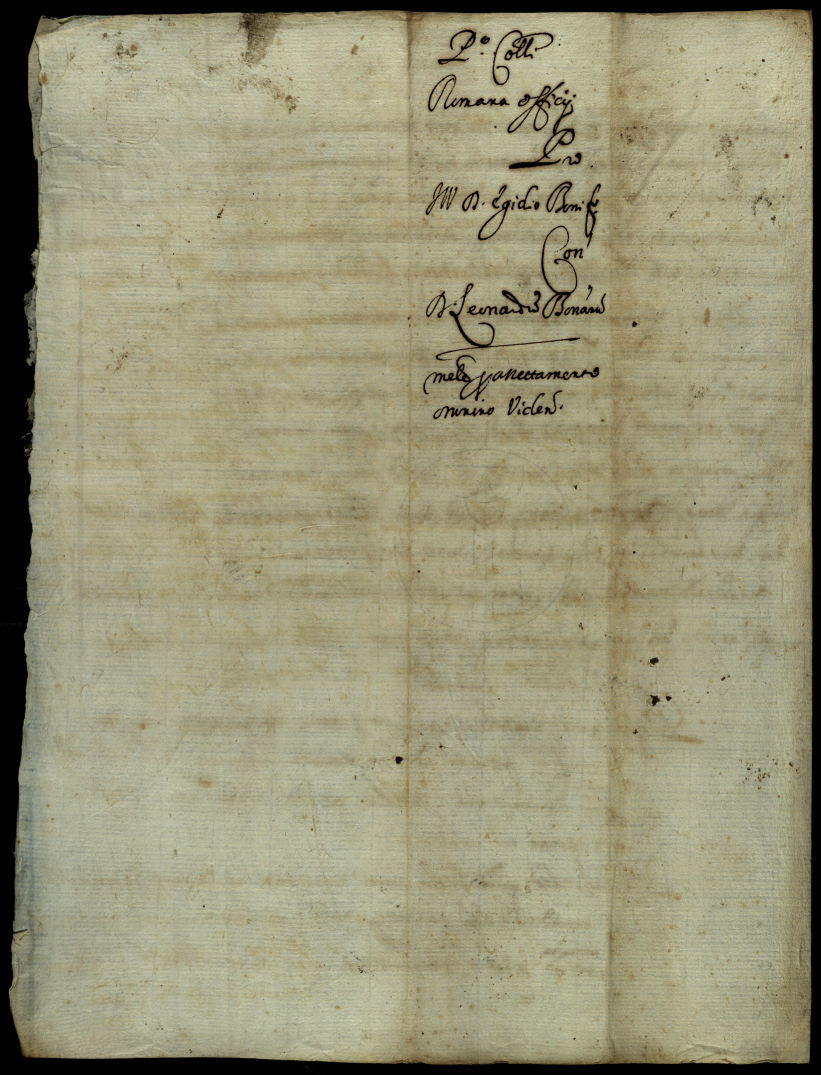 P.º Coll:
Romana officij
Pro
Ill D. Egidio Boni
Con
D. Leonardũ Bonanũ

omnino Viden.